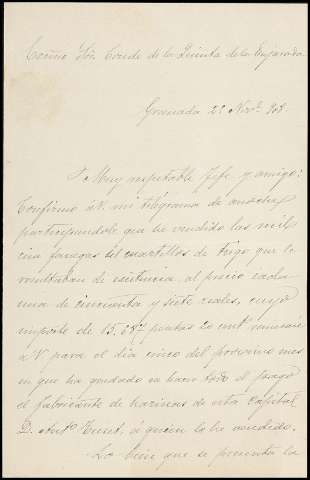 Excmo Sor Conde de la Quinta de la Enjarada
Granada 29 Novbe 908
Muy respetable Jefe y amigo:
Confirmo á V. mi telégrama de anoche
participandole que he vendido las mil
cien fanegas cuartillos de trigo que le
resultaban de existencia, al precio cada
una de cincuenta y siete reales, cuyo
importe de 15.687 pesetas 20 cnt
á V. para el dia cinco del proximo mes
en que ha quedado en hacer el pago
el fabricante de harinas de esta capital
D. Anto á quien lo he vendido.
Lo bien que se presenta la